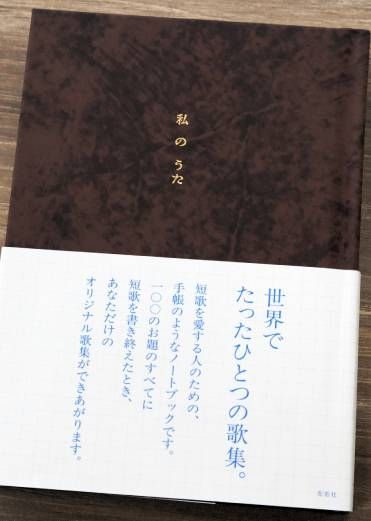 私のうた
世界で
たったひとつの歌集。
短歌を愛する人のための、
手帳のようなノートブックです。
一〇〇のお題のすべてに
短歌を書き終えたとき、
あなただけの
オリジナル歌集ができあがります。